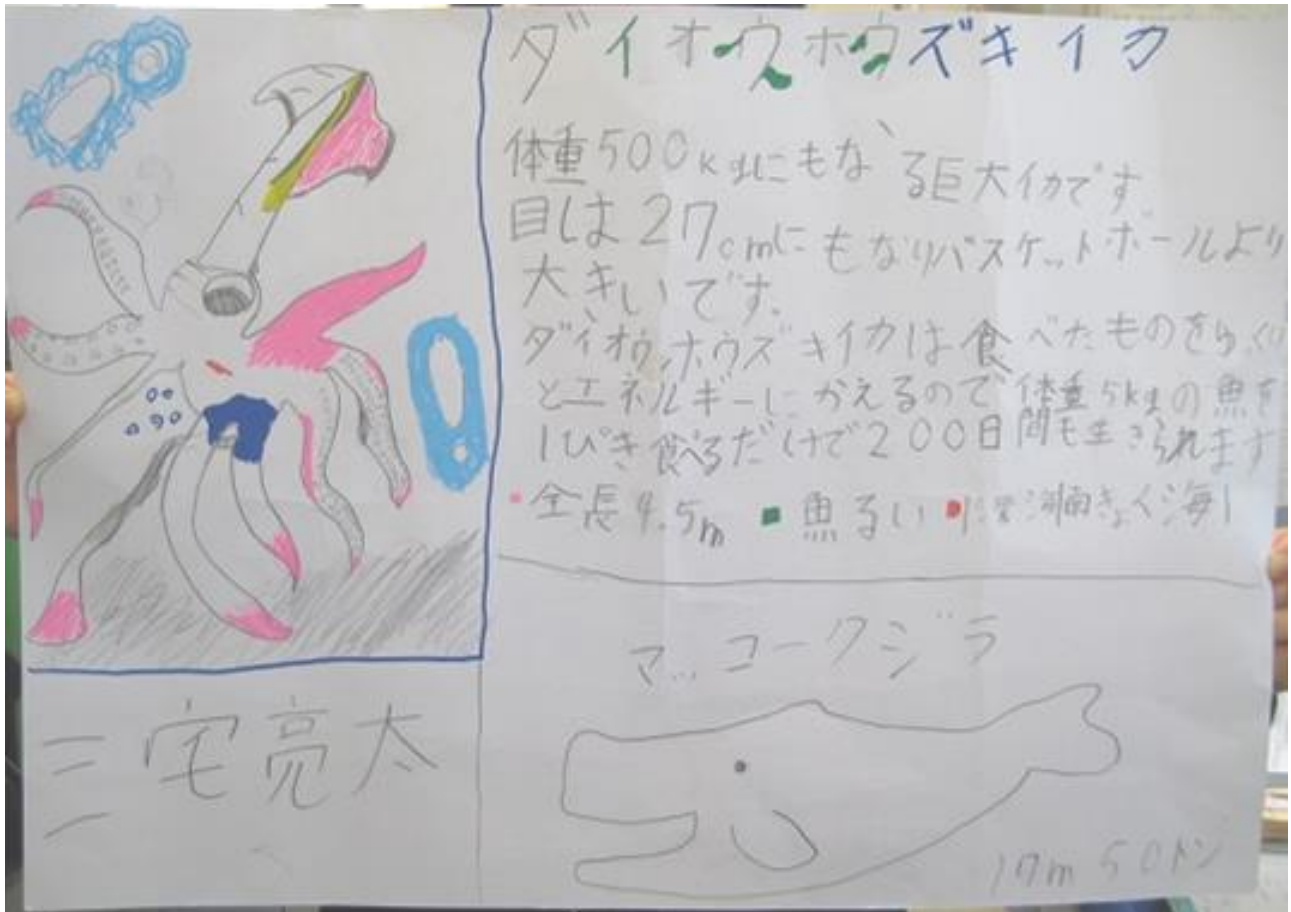 ダイオウホウズキイカ
体重500kgにもなる巨大イカです
目は27cmにもなりバスケットボールより
大きいです。
ダイオウホウズキイカは食べたものをらくら
とエネルギーにかえるので体重5kgの魚を
1ぴき食べるだけで200日間も生きられます
全長4.5m 魚るい 南きょく海
マッコークジラ
17m 50トン
三宅亮太